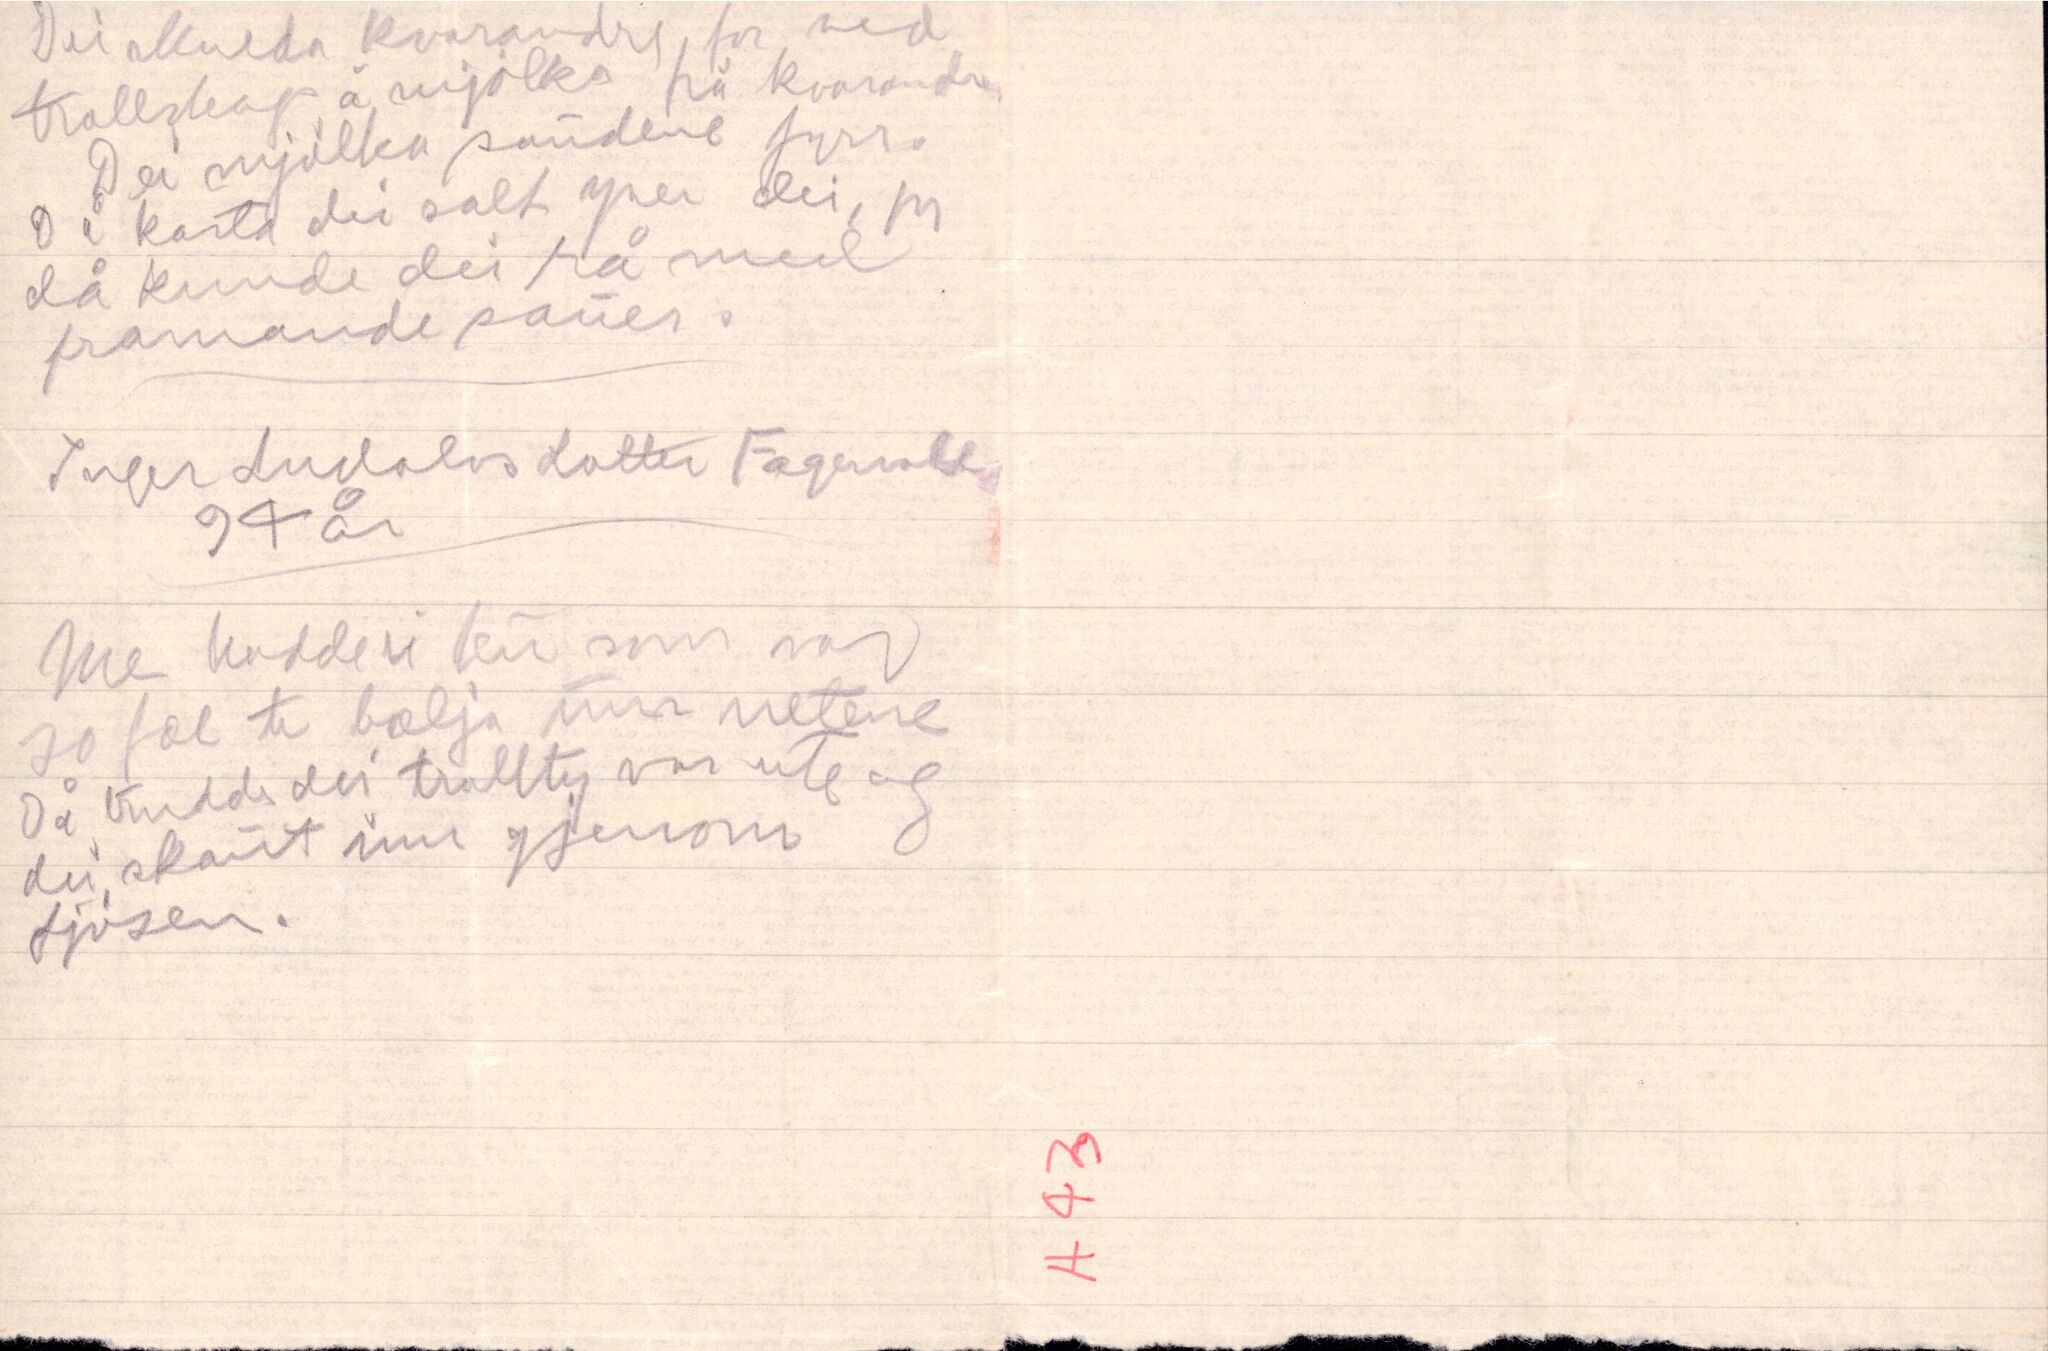 Dei skulda kvarandre for med
trollskap å mjølka frå kvarandre
Dei mjølka saudene fyrr.
Då kasta dei salt yver dei, for
då kunde dei få med
framande sauer.
Inger Ludalvsdotter Fagervoll
94 år
Me hadde ei kū som var
so fæl te bælja inn netene
Då trudde dei trollty var ute og
dei skaut inn gjenom
fjøsen.
H 43